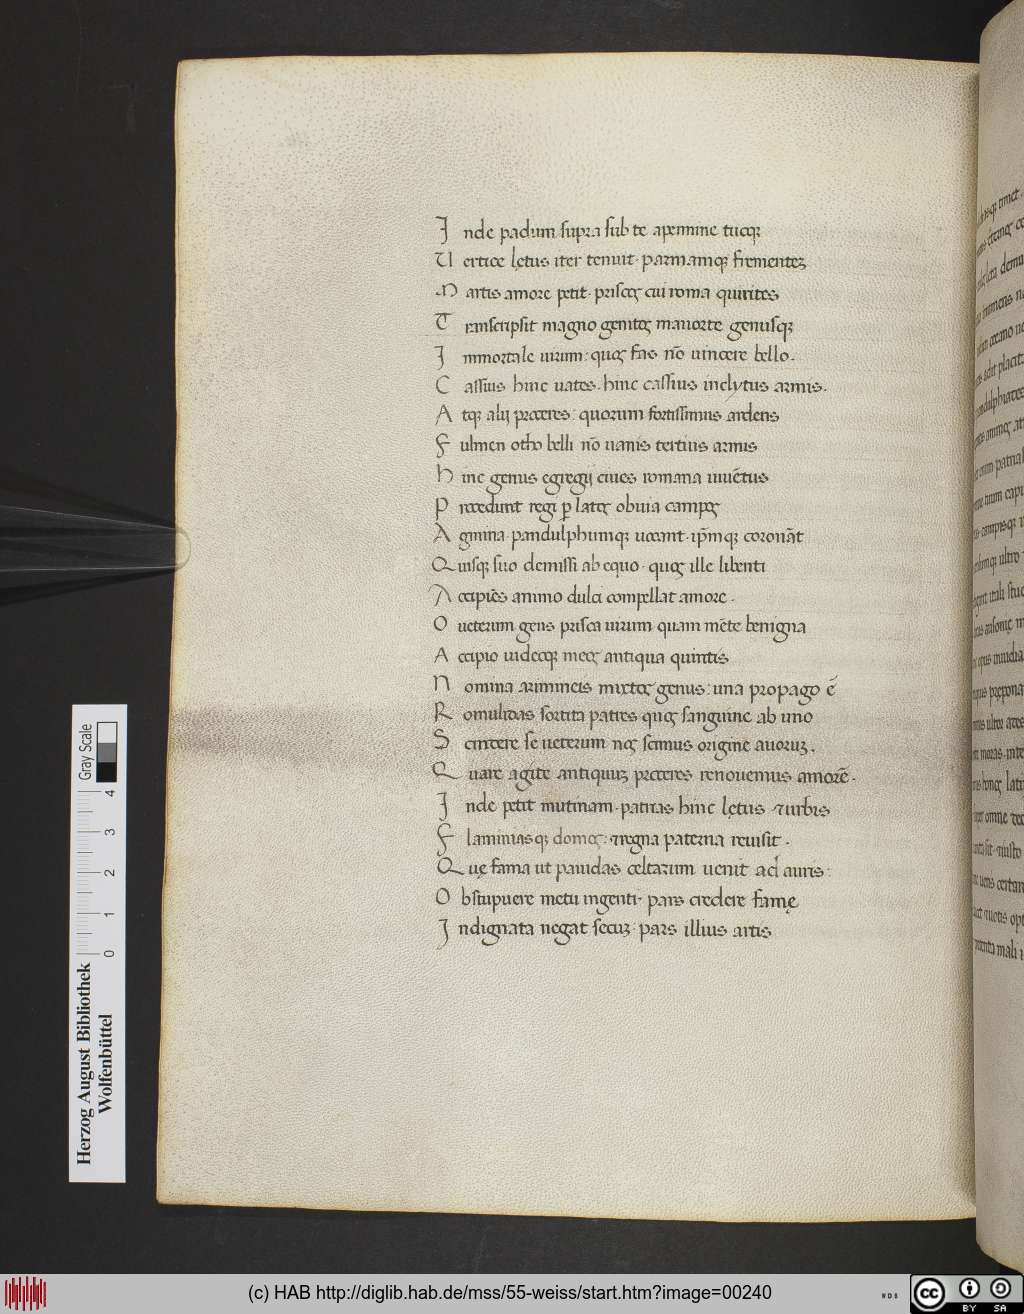 Inde padum supra sub te apennine tuoqꝫ
Uertice lętus iter tenuit· parmamqꝫ frementeꝫ
Martis amore petit· priscos cui roma quirites
Transcripsit magno genitos mauorte genusqꝫ
Immortale uirum: quos fas nō uincere bello.
Cassius hinc uates. hinc cassius inclytus armis.
Atqꝫ alij proceres: quorum fortissimus ardens
Fulmen otho belli nō uanis tertius armis
Hinc genus egregij ciues romana iuuētus
Procedunt regi ꝑ latos obuia campos
Agmina· pandulphumqꝫ uocant· ip̄mqꝫ coronāt
Quisqꝫ suo demissi ab equo· quos ille libenti
Accipiēs animo dulci compellat amore.
O ueterum gens prisca uirum quam mēte benigna
Accipio uideoqꝫ meos antiqua quiritis
Nomina arimineis mixtos genus: una propago ē
Romulidas sortita patres quos sanguine ab uno
Cernere se ueterum nos scimus origine auoruꝫ.
Quare agite antiquuꝫ proceres renouemus amorē.
Inde petit mutinam· patrias hinc lętus ⁊urbis
Flaminiasqꝫ domos: ⁊regna paterna reuisit.
Quę fama ut pauidas celtarum uenit ad auris:
Obstupuere metu ingenti· pars credere famę
Indignata negat secuꝫ· pars illius artis
Herzog August Bibliothek
Wolfenbüttel
Gray Scale
0 1 2 3 4
(c) HAB http://diglib.hab.de/mss/55-weiss/start.htm?image=00240
cc
BY SA